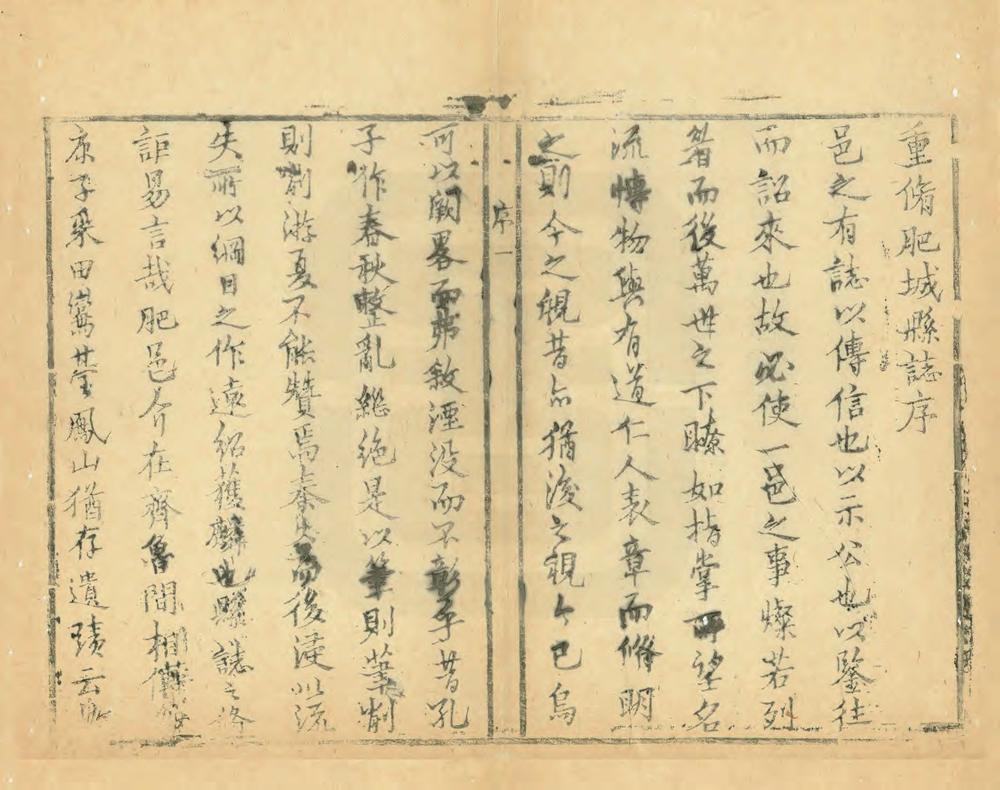 重脩肥城縣誌序
邑之有誌以傳信也以示公也以鑒往
而詔來也故必使一邑之事燦若列
眉而後萬世之下瞭如指掌而望名
流愽物與有道仁人表章而脩明
之則今之視昔亦猶後之視今已烏
序一
可以闕畧而弗敘湮没而不彰乎昔孔
子作春秋整亂繩絶是以筆則筆削
則削游夏不能贊焉秦火而後浸以流
失所以綱目之作遠紹獲麟也縣誌之脩
詎易言哉肥邑介在齊魯間相傳
康子采田鸞基鳳山猶存遺蹟云